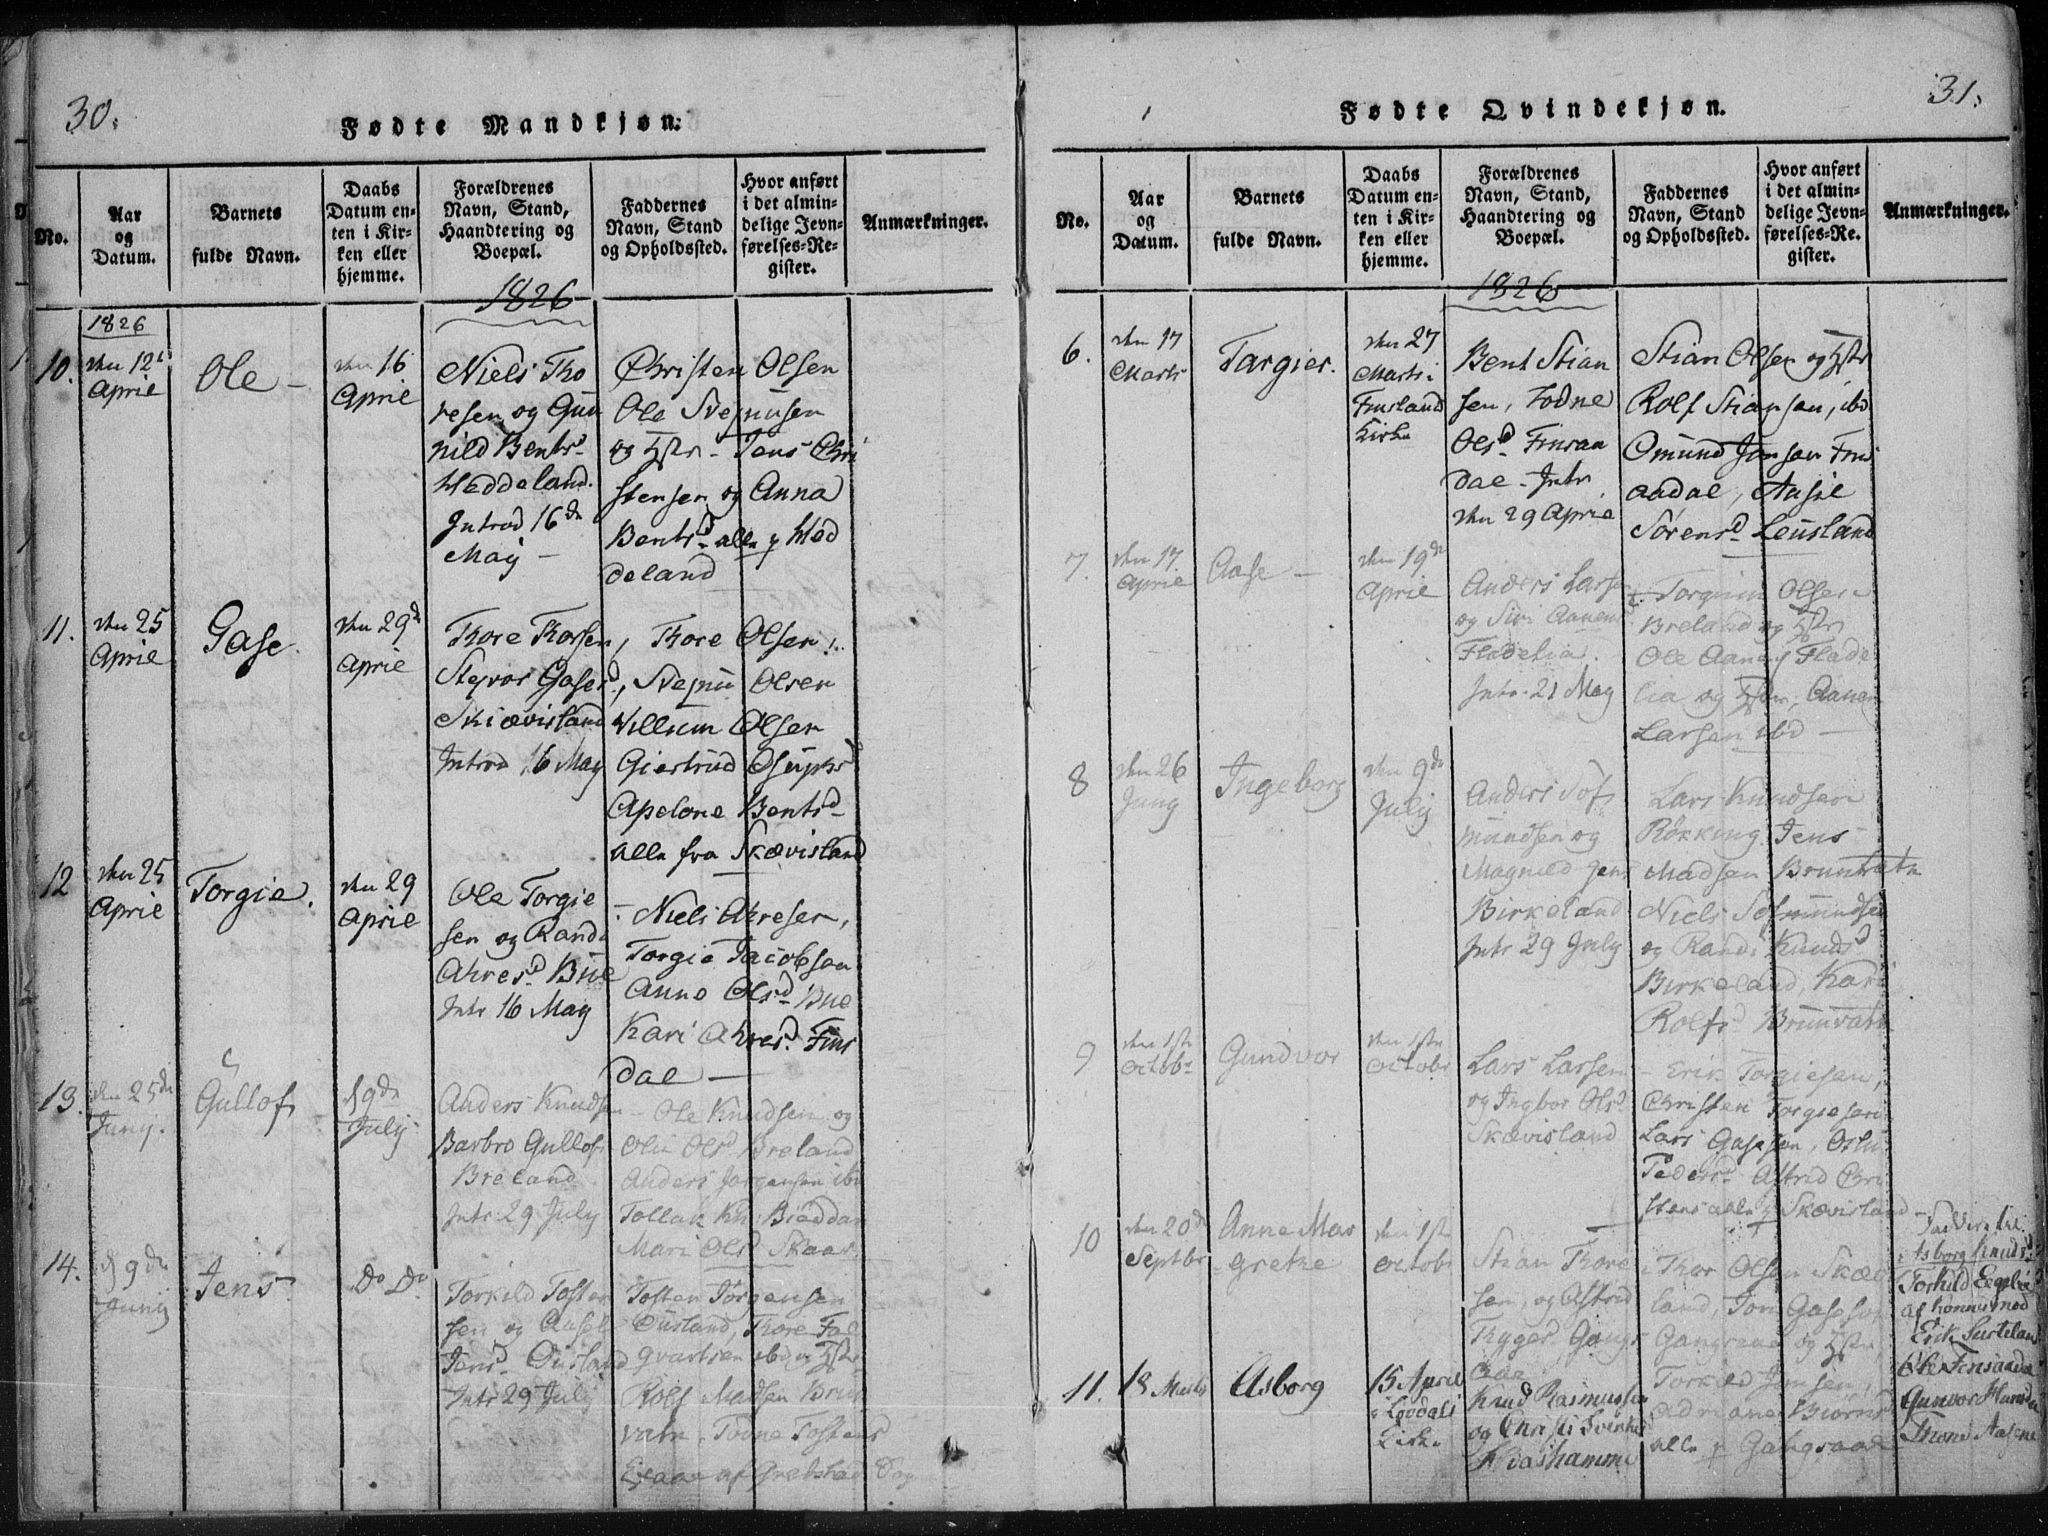 30.
Fødte Mandkjøn.
No.
Aar
og
Datum.
Barnets
fulde Navn.
Daabs
Datum en-
ten i Kir-
ken eller
hjemme.
Forældrenes
Navn, Stand,
Haandtering og
Boepæl.
Faddernes
Navn, Stand
og Opholdssted.
Hvor anført
i det almin-
delige Jevn-
førelses-Re-
gister.
Anmærkninger.
1826
1826
10.
den 12
April
Ole
den 16
April
Niels Tho
resen og Gun
nild Bents
Heddeland.
Introd 16 de
May
Christen Olsen
Ole Stejnusen
og Hstr Jens Chri
stensen og Anna
Bentsd alle p Hed
deland
11.
den 25
April
Gase
den 29 d
April
Thore Thorsen,
Stejvor Gases d,
Skiævisland
Introd 16 May
Thore Olsen
Stejnu Olsen
Villum Olsen
Giertrud
Apelone Bentsd
alle fra Skævisland
12
den 25
April
Torgie.
den 29
April
Ole Torgie
sen og Rand
Ahresd Bue
Intr 16 May
Niels Ahresen,
Torgie Jacobsen
Anne Olsd Bue
Kari Ahresd. Fins
dal
13.
den 25 de
Junij.
Gullof
d 9 de
July
Anders Knudsen
Barbro Gullofs
Breland
Intr 29 July
Ole Knudsen og
Olsd Breland
Anders Jørgensen ibd
Tollak Kn.
Mari Olsd Skaar
14.
d 9 de
Junij
Jens
Do Do
Torkild Tosten
sen og Aasel
Jensd Ousland
Intr 29 July
Tosten Jørgensen
Ousland, Thore Fal
qvartsen ibd og Hstr
Rolf Madsen Brun
vatn Todne Tostens
31.
Fødte Qvindekjøn.
No.
Aar
og
Datum.
Barnets
fulde Navn.
Daabs
Datum en-
ten i Kir-
ken eller
hjemme.
Forældrenes
Navn, Stand,
Haandtering og
Boepæl.
Faddernes
Navn, Stand
og Opholdssted.
Hvor anført
i det almin-
delige Jevn-
førelses-Re-
gister.
Anmærkninger.
1826
6.
den 17
Marts
Targier.
den 27
Marts i
Finsland
Kirke
Bent Stian
sen, Todne
Olsd. Finsaa
dal. Intr
den 29 April
Stian Olsen og Hstr
Rolf Stiansen, ibd
Omund Jonsen Fins
aadal, Aasil
Sørensd Leusland
7.
den 17.
April
Aase
den 19 de
April
Anders Larse
og Siri Aanens
Fladelia.
Intr. 21 May
Torgrim Olsen
Breland og Hstr
Ole Aanens Flade
lia og Hstr, Aanen
Larsen ibd
8
den 26
Juny
Ingeborg
den 9 de
July
Anders Sof
mundsen og
Magnild Jens
Birkeland
Intr 29 July
Lars Knudsen
Røkking Jens
Madsen Brunvatn
Niels Sofmundsen
og Randi Knudsd
Birkeland, Kari
Rolfsd Brunvatn
9
den 1ste
Octobr
Gundvor
den 1ste
Octobr
Lars Larsen
og Ingbor Olsd
Skævisland
Erik Torgiesen,
Christen Torgiesen
Lars Gasesen,
Pedersd Astrid Chri
stens alle p Skævisland
10
den 20 d
Septbr
Anne Mar
grethe
den 1ste
Octobr
Stian Thore
sen, og Astrid
Trygsd Gangs
aae
Thor Olsen Skæv
land, Jon Gasesen
og Hstr,
Torkild Jensen
Adriane Biørns
alle p Gangsaae
11.
18 Marts
Asborg
15 April
i Løvdals
Kirke
Knud Rasmussen
og Christi
Fadderne til
Asborg Knudsd
Torkild
af
Erik
Ole Finsaadal
Gunvor
Thone Aasene